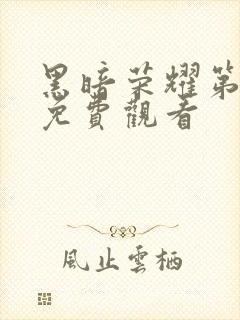 黑暗荣耀第
免費觀看
風止雲栖